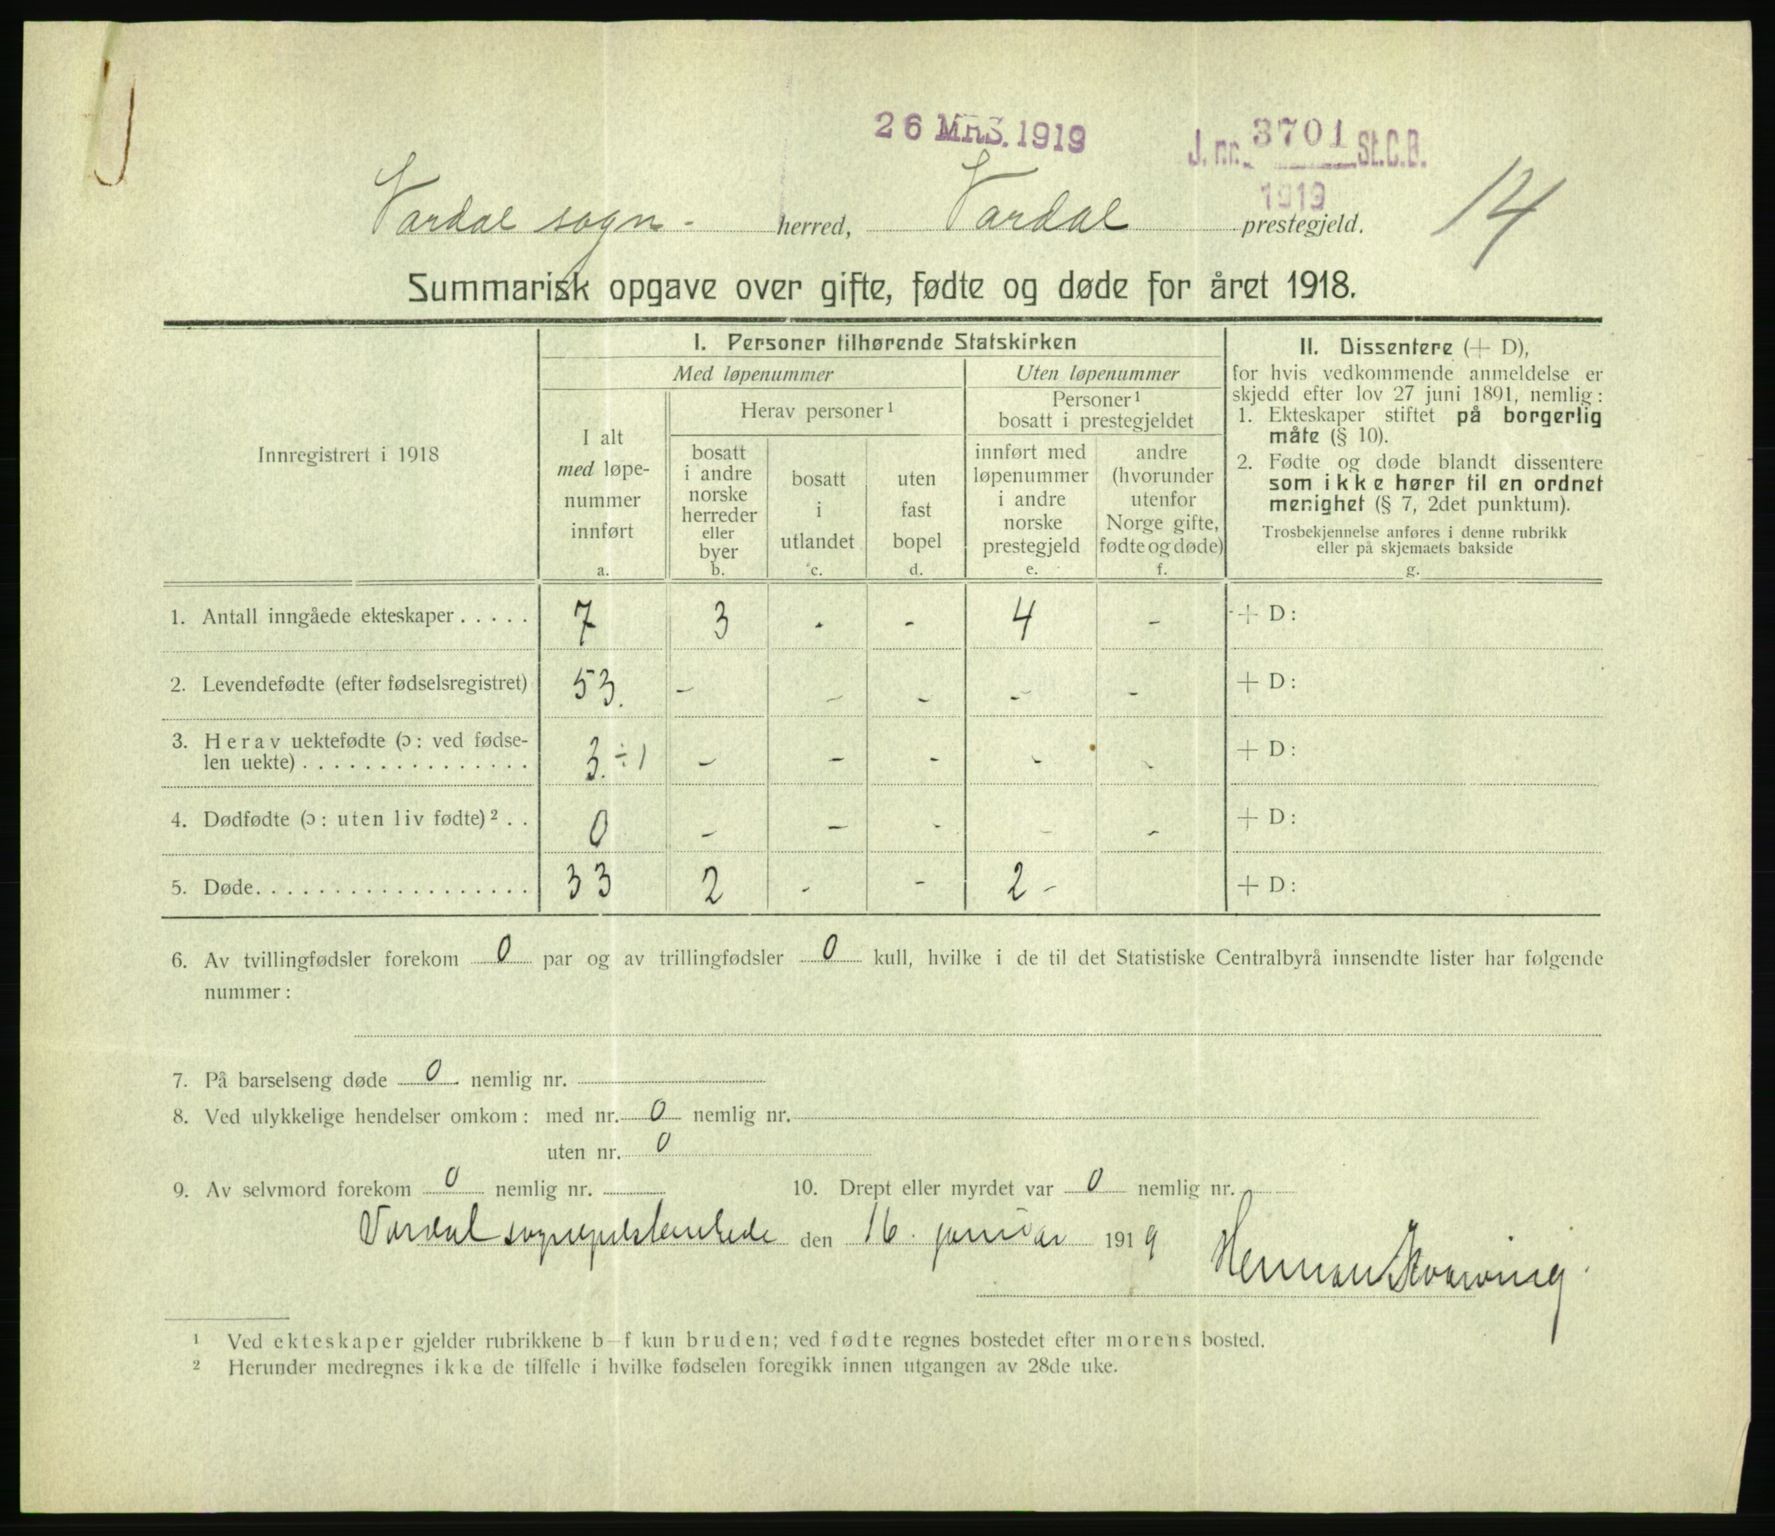 26 MRS. 1919
J. nr. 3701 St.C.B.
1919
14
Vardal sogn - herred, Vardal prestegjeld.
Summarisk opgave over gifte, fødte og døde for året 1918.
Innregistrert i 1918
I. Personer tilhørende Statskirken
Med løpenummer
Uten løpenummer
I alt
med løpe-
nummer
innført
a.
Herav personer ¹
bosatt
i andre
norske
herreder
eller
byer
b.
bosatt
i
utlandet
c.
uten
fast
bopel
d.
Personer ¹
bosatt i prestegjeldet
innført med
løpenummer
i andre
norske
prestegjeld
e.
andre
(hvorunder
utenfor
Norge gifte,
fødte og døde)
f.
II. Dissentere (+ D),
for hvis vedkommende anmeldelse er
skjedd efter lov 27 juni 1891, nemlig:
1. Ekteskaper stiftet på borgerlig
måte (§ 10).
2. Fødte og døde blandt dissentere
som ikke hører til en ordnet
menighet (§ 7, 2det punktum).
Trosbekjennelse anføres i denne rubrikk
eller på skjemaets bakside
g.
1. Antall inngåede ekteskaper ..... 7 3 - - 4 - + D:
2. Levendefødte (efter fødselsregistret) 53. - - - - - + D:
3. Herav uektefødte (ɔ: ved fødse-
len uekte) ............... 3. ÷1 - - - - - + D:
4. Dødfødte (ɔ: uten liv fødte) ² .. 0 - - - - - + D:
5. Døde .................. 33 2 - - 2 - + D:
6. Av tvillingfødsler forekom 0 par og av trillingfødsler 0 kull, hvilke i de til det Statistiske Centralbyrå innsendte lister har følgende
nummer:
7. På barselseng døde 0 nemlig nr.
8. Ved ulykkelige hendelser omkom: med nr. 0 nemlig nr.
uten nr. 0
9. Av selvmord forekom 0 nemlig nr. 10. Drept eller myrdet var 0 nemlig nr.
Vardal sogneprestembede den 16. januar 1919
Herman
¹ Ved ekteskaper gjelder rubrikkene b–f kun bruden; ved fødte regnes bostedet efter morens bosted.
² Herunder medregnes ikke de tilfelle i hvilke fødselen foregikk innen utgangen av 28de uke.